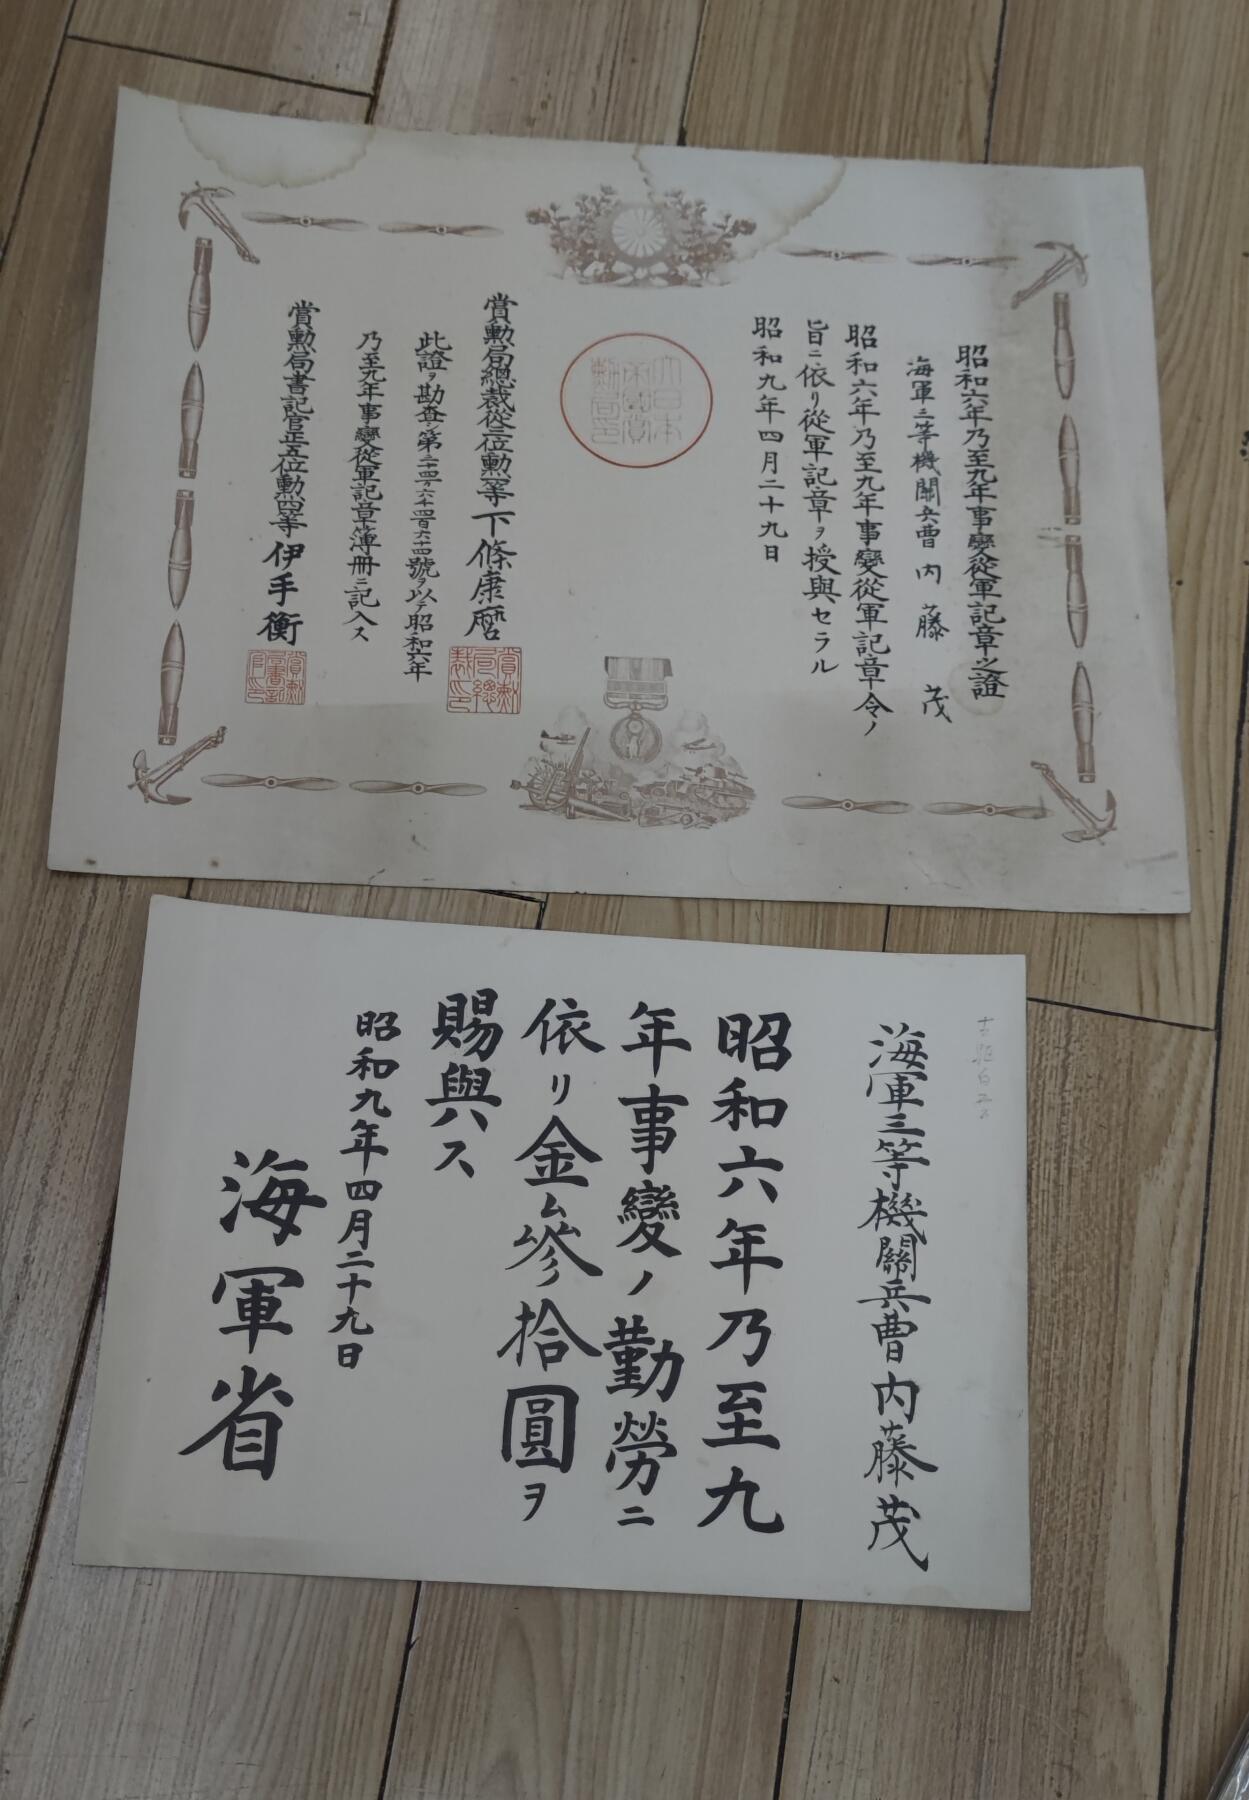 昭和六年乃至九年事變從軍記章之證
海軍三等機關兵曹 內藤 茂
昭和六年乃至九年事變從軍記章令ノ
旨ニ依リ從軍記章ヲ授與セラル
昭和九年四月二十九日
大日本
帝國賞
勲局印
賞勲局總裁從三位勲一等下條康麿
賞勲
局總
裁印
此證ヲ勘査シ第二十四万六千四百六十四號ヲ以テ昭和六年
乃至九年事變從軍記章簿冊ニ記入ス
賞勲局書記官正五位勲四等伊手衡
賞勲
局書記
官印
海軍三等機關兵曹內藤茂
昭和六年乃至九
年事變ノ勤勞ニ
依リ金參拾圓ヲ
賜與ス
昭和九年四月二十九日
海軍省